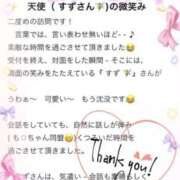 天使（すずさん）の微笑み
二度めの訪問です！
言葉では、言い表わせ無いほど- - ♪
素敵な時間を過ごさせて頂きました
受付を終え、対面をした瞬間 - そこには、
満面の笑みをたたえている『すず』さんが
うわぁ♡ 可愛い〜 もう沈没です
会話をしていても、自然に話しが弾み
時間を
過ごさせて頂きました
Thank you!
さんは、気遣い - 会話も素晴らし